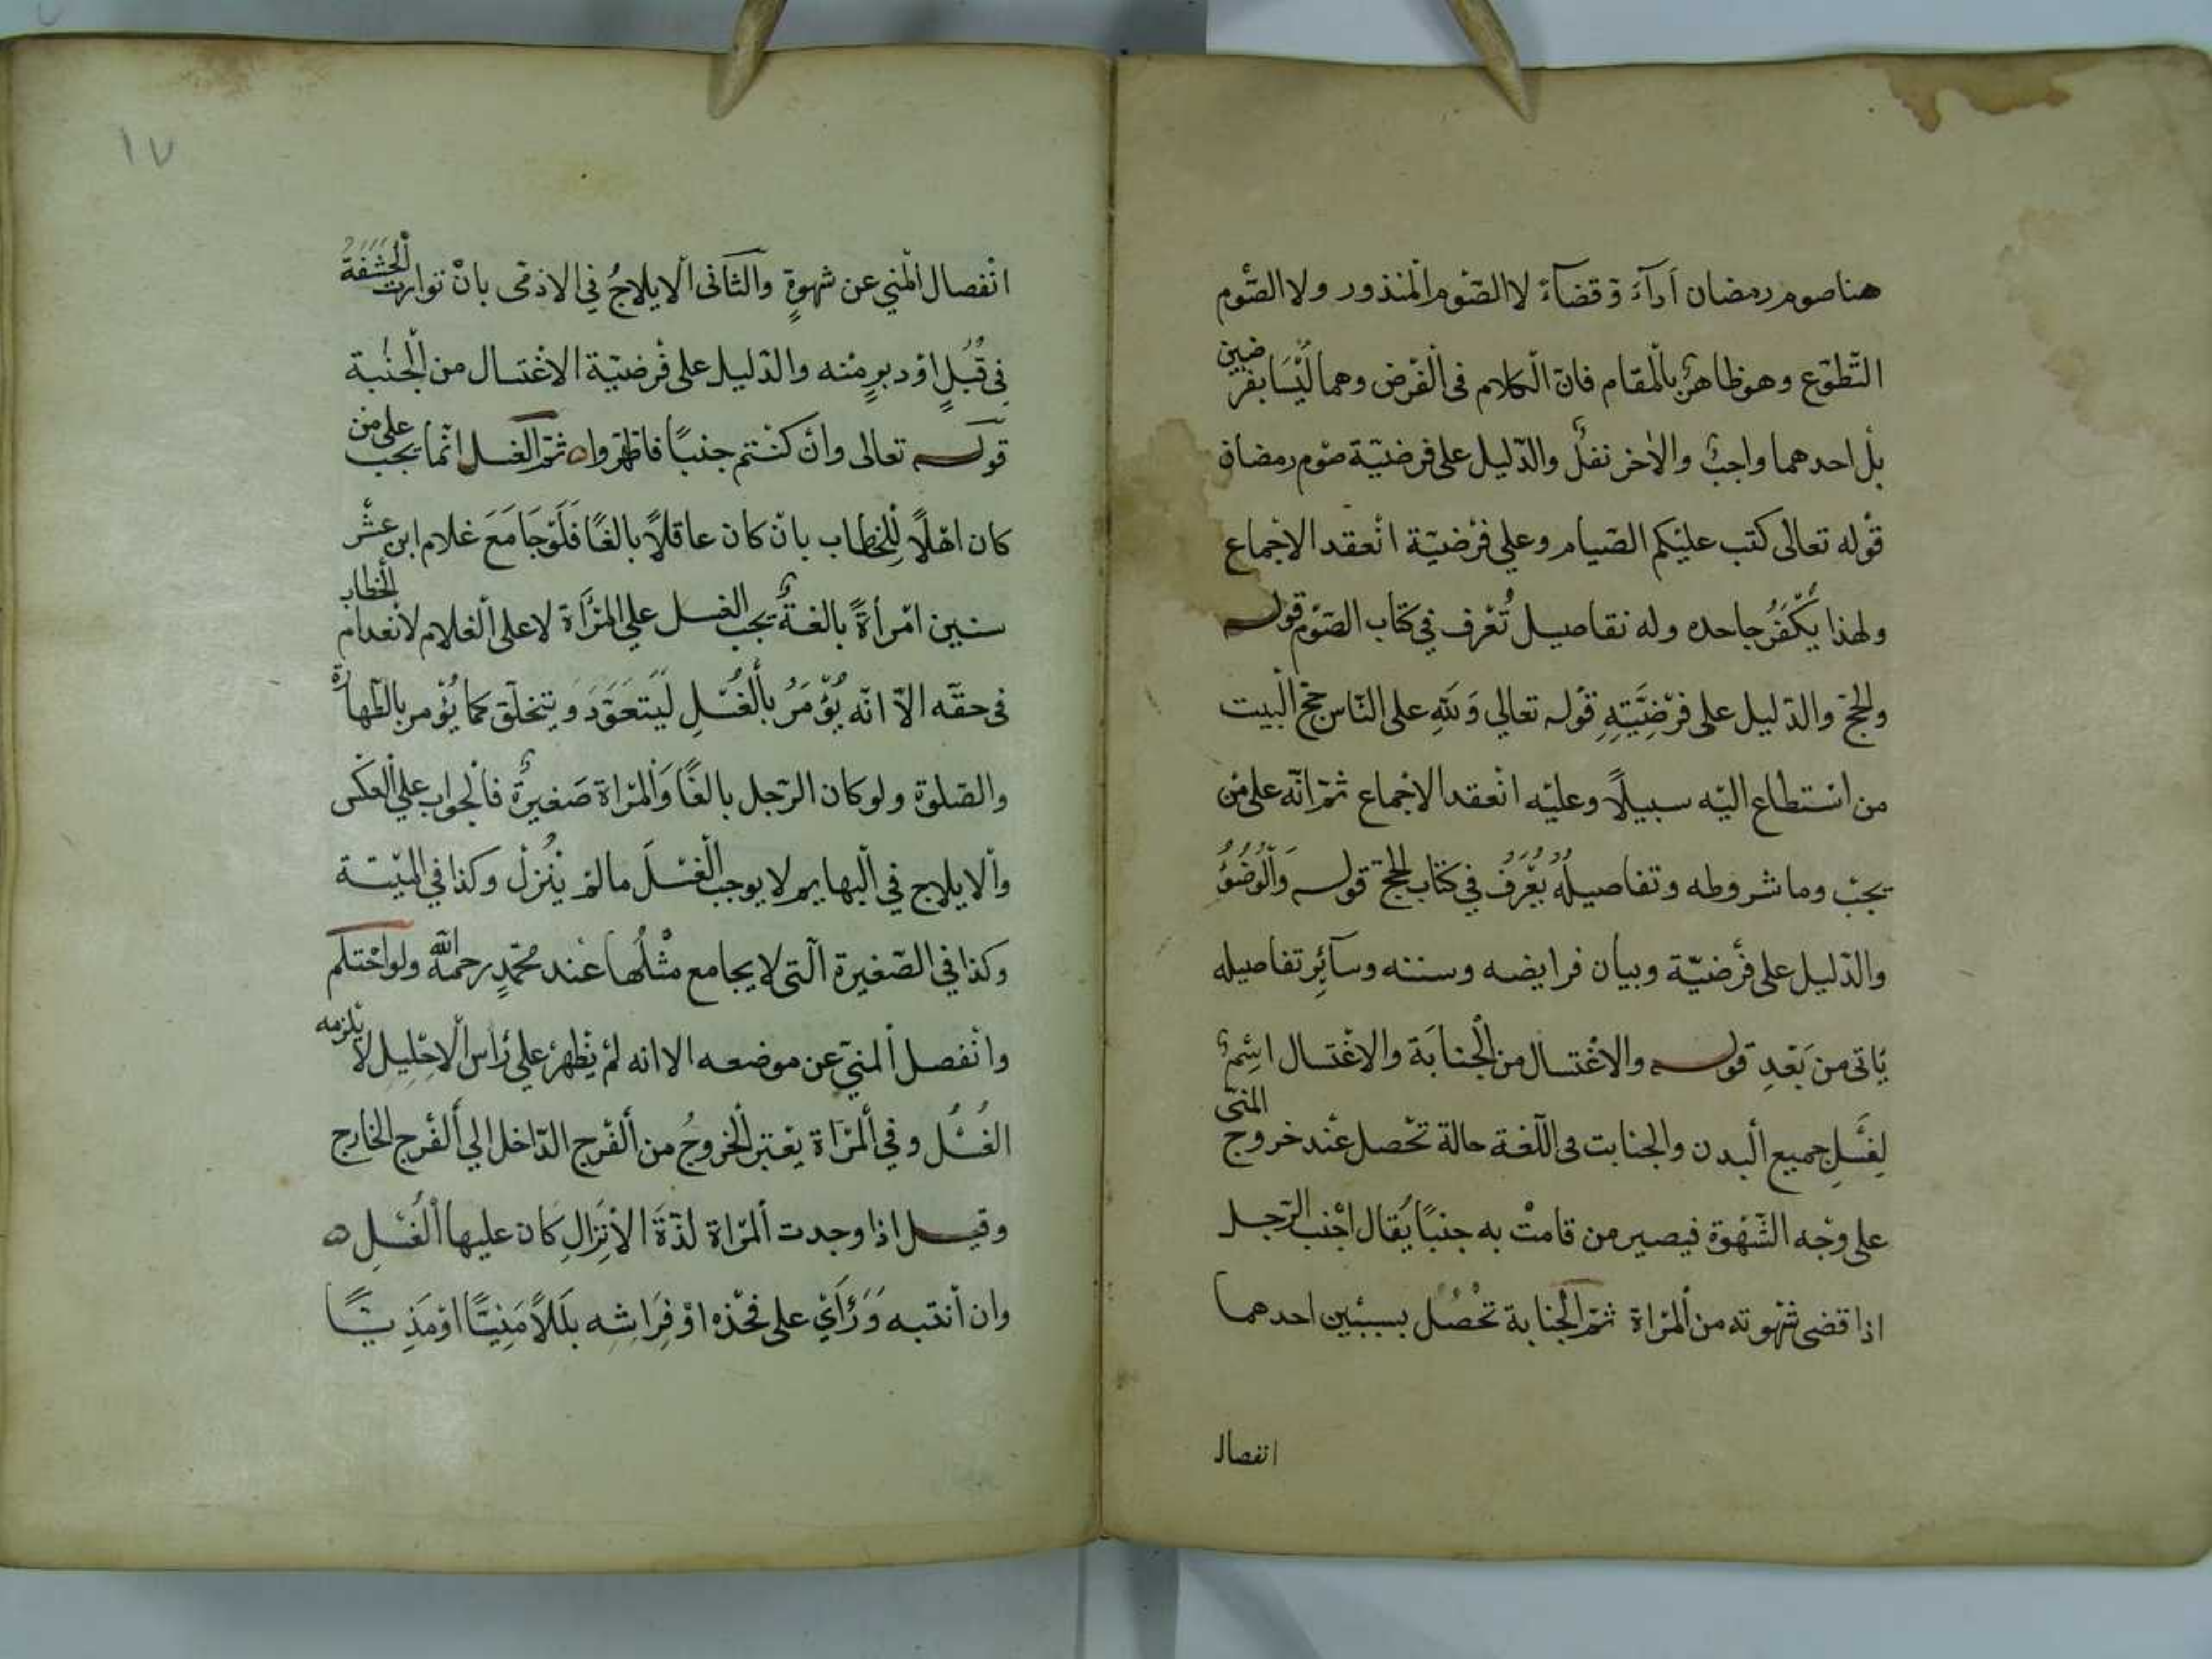 هنا صوم رمضان اَدآءً وَقضآءً لا الصّوم المنذور ولا الصّوم
التّطوّع وهو ظاهرٌ بالمقام فانّ الكلام فى الفرض وهما ليْسَا بفرضين
بل احدهما واجبٌ والاخر نفلٌ والدّليل على فرضيّة صوم رمضان
قوله تعالى كتب عليكم الصّيام وعلي فرضيّة انعقد الاجماع
ولهذا يُكْفَرُ جاحده وله تفاصيل تُعْرف في كتاب الصّوم قوله
والحجّ والدّليل على فرْضِيَّتِهِ قوله تعالي وَلِلهِ على النّاس حجّ البيت
من استطاع اليه سبيلًا وعليه انعقد الاجماع ثمّ انّه على من
يجب وما شروطه وتفاصيلُهُ يُعْرَفُ في كتاب الحجّ قوله وَالْوُضُوُءُ
والدّليل على فرضيّة وبيان فرايضه وسننه وسآئِر تفاصيله
يَاتى من بَعْدِ قوله والاغْتسال من الْجنابَة والاغْتسال اسْمٌ
لِغَسْلِ جميع الْبدن والجنابت فى اللّغة حالة تحْصل عنْد خروج المنىّ
على وجْه الشَّهْوة فيصير من قامتْ به جنبًا يُقال اجْنب الرّجل
اذا قضى شهْوته من الْمرْاة ثمّ الْجنابة تحْصُل بسببين احدهما
انفصال
١٧
انْفصال الْمني عن شهْوةٍ والثّانى الْايلاجُ في الادْمى بانْ توارت الْحَشَفَةُ
فى قُبُلٍ اوْ دبرٍ منْه والدّليل على فرْضيّة الاغْتسال من الْجَنْبة
قوله تعالى وانْ كنْتم جنبًا فاطّهّروا ثمّ الغسل انّما يجب على من
كان اهْلًا لِلْخطاب بانْ كان عاقلًا بالغًا فَلَوْ جَامَعَ غلام ابن عشْر
سنين امْرأةً بالغةٌ يجب الغسل علي المرْأَة لا على الْغلام لانْعدام الْخطاب
فى حقّه الاّ انّه يُؤْمَرُ بالْغُسْلِ لَيَتَعَوَّدَ وَيتخلّق كما يُؤْمر بالطّهارة
والصّلوة ولو كان الرّجل بالغًا وَالْمرْاة صَغيرةٌ فالْجواب علي الْعَكْس
والْايلاج في الْبهايم لا يوجب الْغسْلَ ما لمْ ينْزلْ وكذا في الميّتة
وكذا في الصّغيرة الّتى لا يجامع مثْلُها عنْد محمّدٍ رحمه اللّه ولو احْتلم
وانْفصل الْمنيّ عن موضعه الا انه لمْ يظْهرْ علي رَاْس الْاحْليل لا يلزمه
الغُسْلُ وفي الْمرْاة يعْتبر الْخروجُ من الْفرْج الدّاخل الي الْفرْج الخارج
وقيل اذا وجدت الْمرْاة لذّةَ الاِنْزالِ كان عليها الْغُسْلِ
وان انْتبه وَرَأَيْ على فخْذه اوْ فِرَاشِه بلَلًا مَنِيًّا اوْ مَذِيًّا